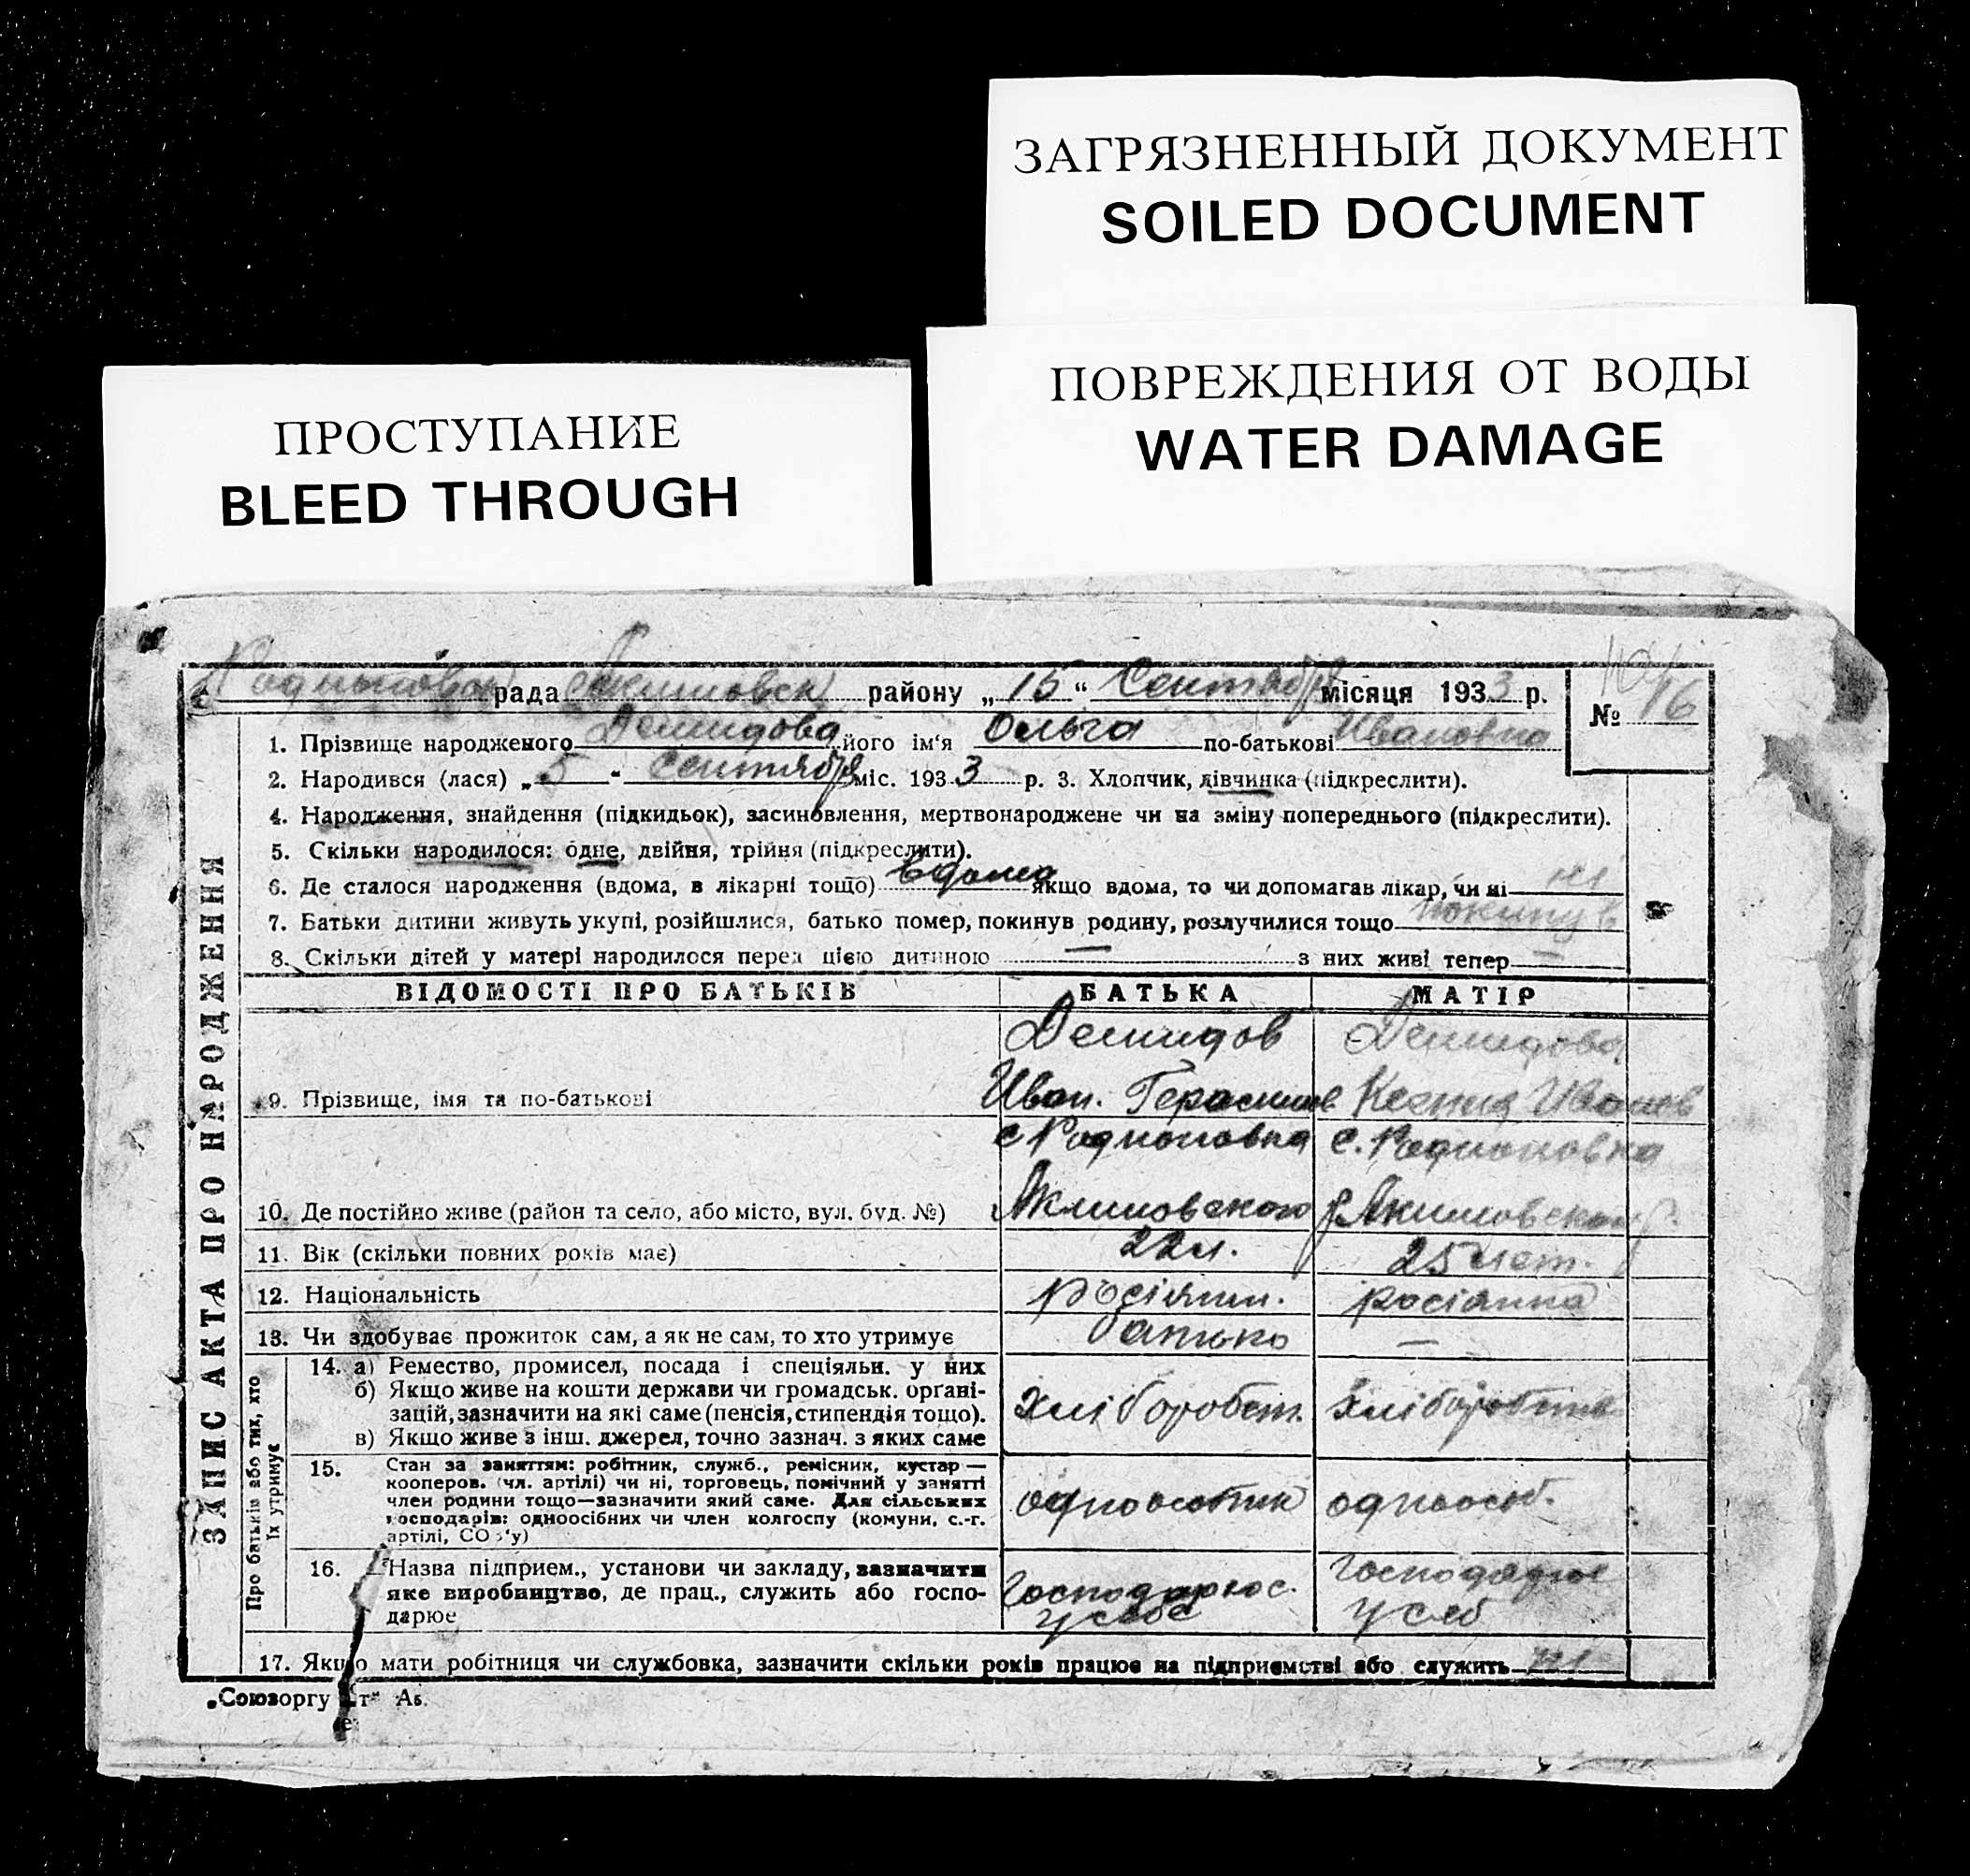 ЗАГРЯЗНЕННЫЙ ДОКУМЕНТ
SOILED DOCUMENT
ПОВРЕЖДЕНИЯ ОТ ВОДЫ
WATER DAMAGE
ПРОСТУПАНИЕ
BLEED THROUGH
рада району „15“ Сентября місяця 1933 р.
№ 16
1. Прізвище народженого Демидова його ім'я Ольга по-батькові Ивановна
2. Народився (лася) „5“ Сентября міс. 1933 р. 3. Хлопчик, дівчинка (підкреслити).
4. Народження, знайдення (підкидьок), засиновлення, мертвонароджене чи на зміну попереднього (підкреслити).
5. Скільки народилося: одне, двійня, трійня (підкреслити).
6. Де сталося народження (вдома, в лікарні тощо) вдома якщо вдома, то чи допомагав лікар, чи ні ні
7. Батьки дитини живуть укупі, розійшлися, батько помер, покинув родину, розлучилися тощо покинув
8. Скільки дітей у матері народилося перед цією дитиною — з них живі тепер —
ЗАПИС АКТА ПРО НАРОДЖЕННЯ
ВІДОМОСТІ ПРО БАТЬКІВ БАТЬКА МАТІР
Демидов Демидова
9. Прізвище, імя та по-батькові Иван. Герасимов. Ксения Иванов
с Родионовка с. Родионовка
10. Де постійно живе (район та село, або місто, вул. буд. №) Акимовского р Акимовского р.
11. Вік (скільки повних років має) 22 л. 25 лет.
12. Національність росіянин. росіянка
13. Чи здобуває прожиток сам, а як не сам, то хто утримує батько —
Про батьків або тих, хто їх утримує
14. а) Ремество, промисел, посада і спеціяльн. у них
б) Якщо живе на кошти держави чи громадськ. органі-
зацій, зазначити на які саме (пенсія, стипендія тощо).
в) Якщо живе з інш. джерел, точно зазнач. з яких саме
хліборобст. хліборобств
15. Стан за заняттям: робітник, служб., ремісник, кустар—
кооперов. (чл. артілі) чи ні, торговець, помічний у занятті
член родини тощо—зазначити який саме. Для сільських
господарів: одноосібних чи член колгоспу (комуни, с.-г.
артілі, СОЗ'у)
одноособник одноособ.
16. Назва підприєм., установи чи закладу, зазначити
яке виробництво, де прац., служить або госпо-
дарює
Господарює. у себе Господарює у себ
17. Якщо мати робітниця чи службовка, зазначити скільки років працює на підприємстві або служить ні
„Союзоргу